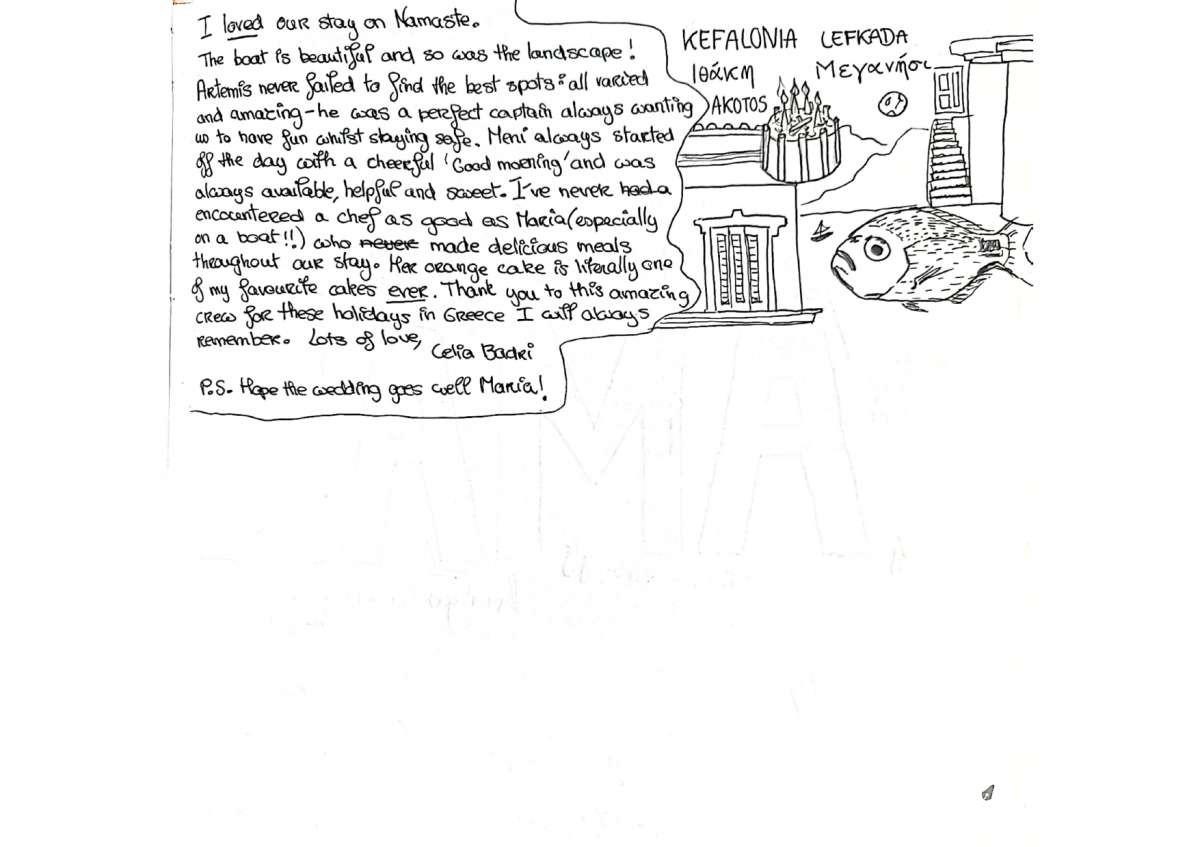 I loved our stay on Namaste.
The boat is beautiful and so was the landscape!
Artemis never failed to find the best spots: all varied
and amazing - he was a perfect captain always wanting
us to have fun whilst staying safe. Meni always started
off the day with a cheerful 'Good morning' and was
always available, helpful and sweet. I've never had a
encountered a chef as good as Maria (especially
on a boat!!) who never made delicious meals
throughout our stay. Her orange cake is literally one
of my favourite cakes ever. Thank you to this amazing
crew for these holidays in Greece I will always
remember. Lots of love,
Celia Badri
P.S. Hope the wedding goes well Maria!
KEFALONIA LEFKADA
Ιθάκη Μεγανήσι
AKOTOS